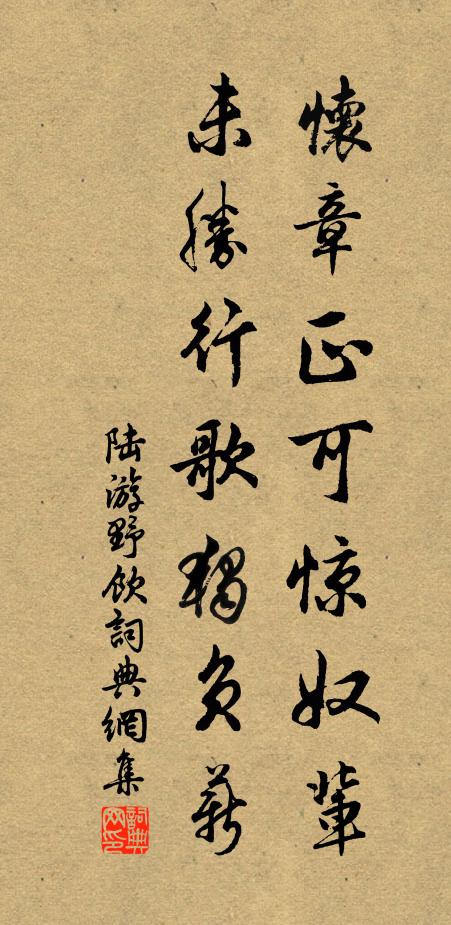 懷章正可惊奴輩
未勝行歌獨負薪
陆游野飲詞典網集
詞典网印